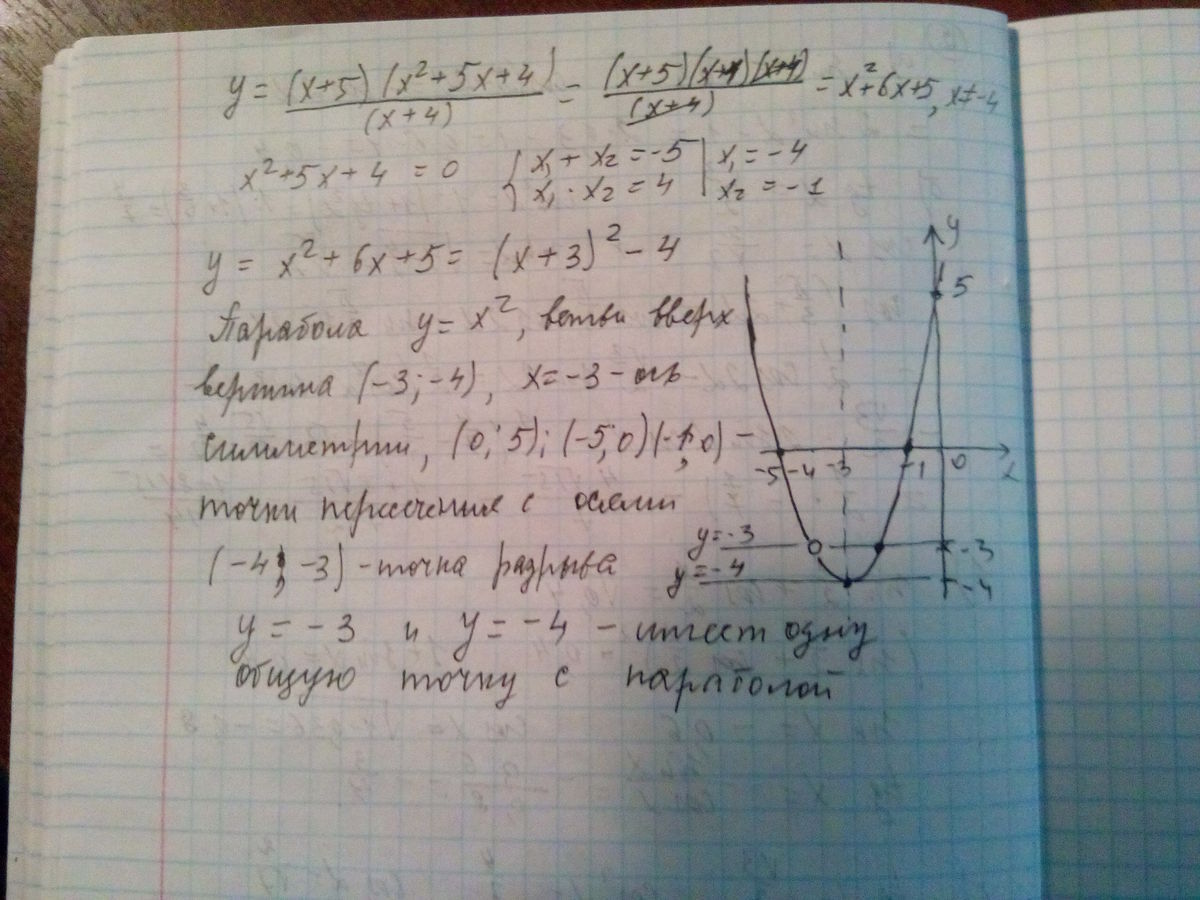 y = (x+5)(x²+5x+4)/(x+4) = (x+5)(x+1)(x+4)/(x+4) = x²+6x+5, x≠-4
x²+5x+4 = 0 { x₁ + x₂ = -5 | x₁ = -4
x₁ · x₂ = 4 | x₂ = -1
y = x²+6x+5 = (x+3)² - 4
Парабола y = x², ветви вверх
вершина (-3; -4), x = -3 - ось
симметрии, (0; 5); (-5; 0) (-1; 0) -
точки пересечения с осями
(-4; -3) - точка разрыва
y = -3 и y = -4 - имеет одну
общую точку с параболой
y
5
-5 -4 -3 -1 0 x
y = -3 -3
y = -4 -4